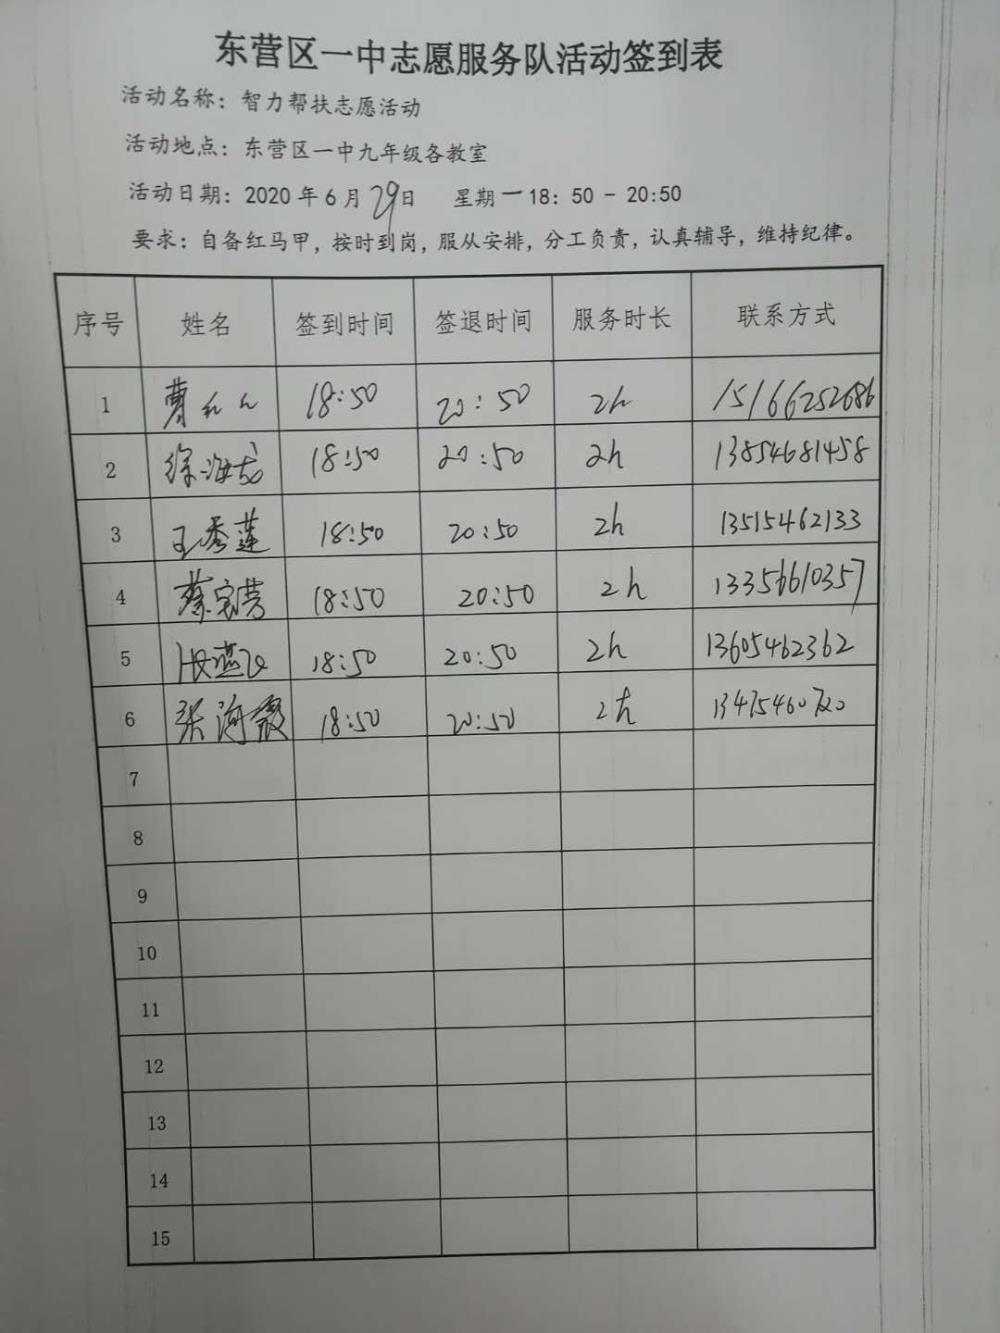 东营区一中志愿服务队活动签到表
活动名称：智力帮扶志愿活动
活动地点：东营区一中九年级各教室
活动日期：2020 年 6 月 29 日 星期一 18：50 - 20:50
要求：自备红马甲，按时到岗，服从安排，分工负责，认真辅导，维持纪律。
序号 姓名 签到时间 签退时间 服务时长 联系方式
1 曹 18:50 20:50 2h 15166252686
2 徐海龙 18:50 20:50 2h 13854681458
3 王秀莲 18:50 20:50 2h 13515462133
4 蔡宝营 18:50 20:50 2h 13356610357
5 18:50 20:50 2h 13605462362
6 张海霞 18:50 20:50 2h 13475460720
7
8
9
10
11
12
13
14
15